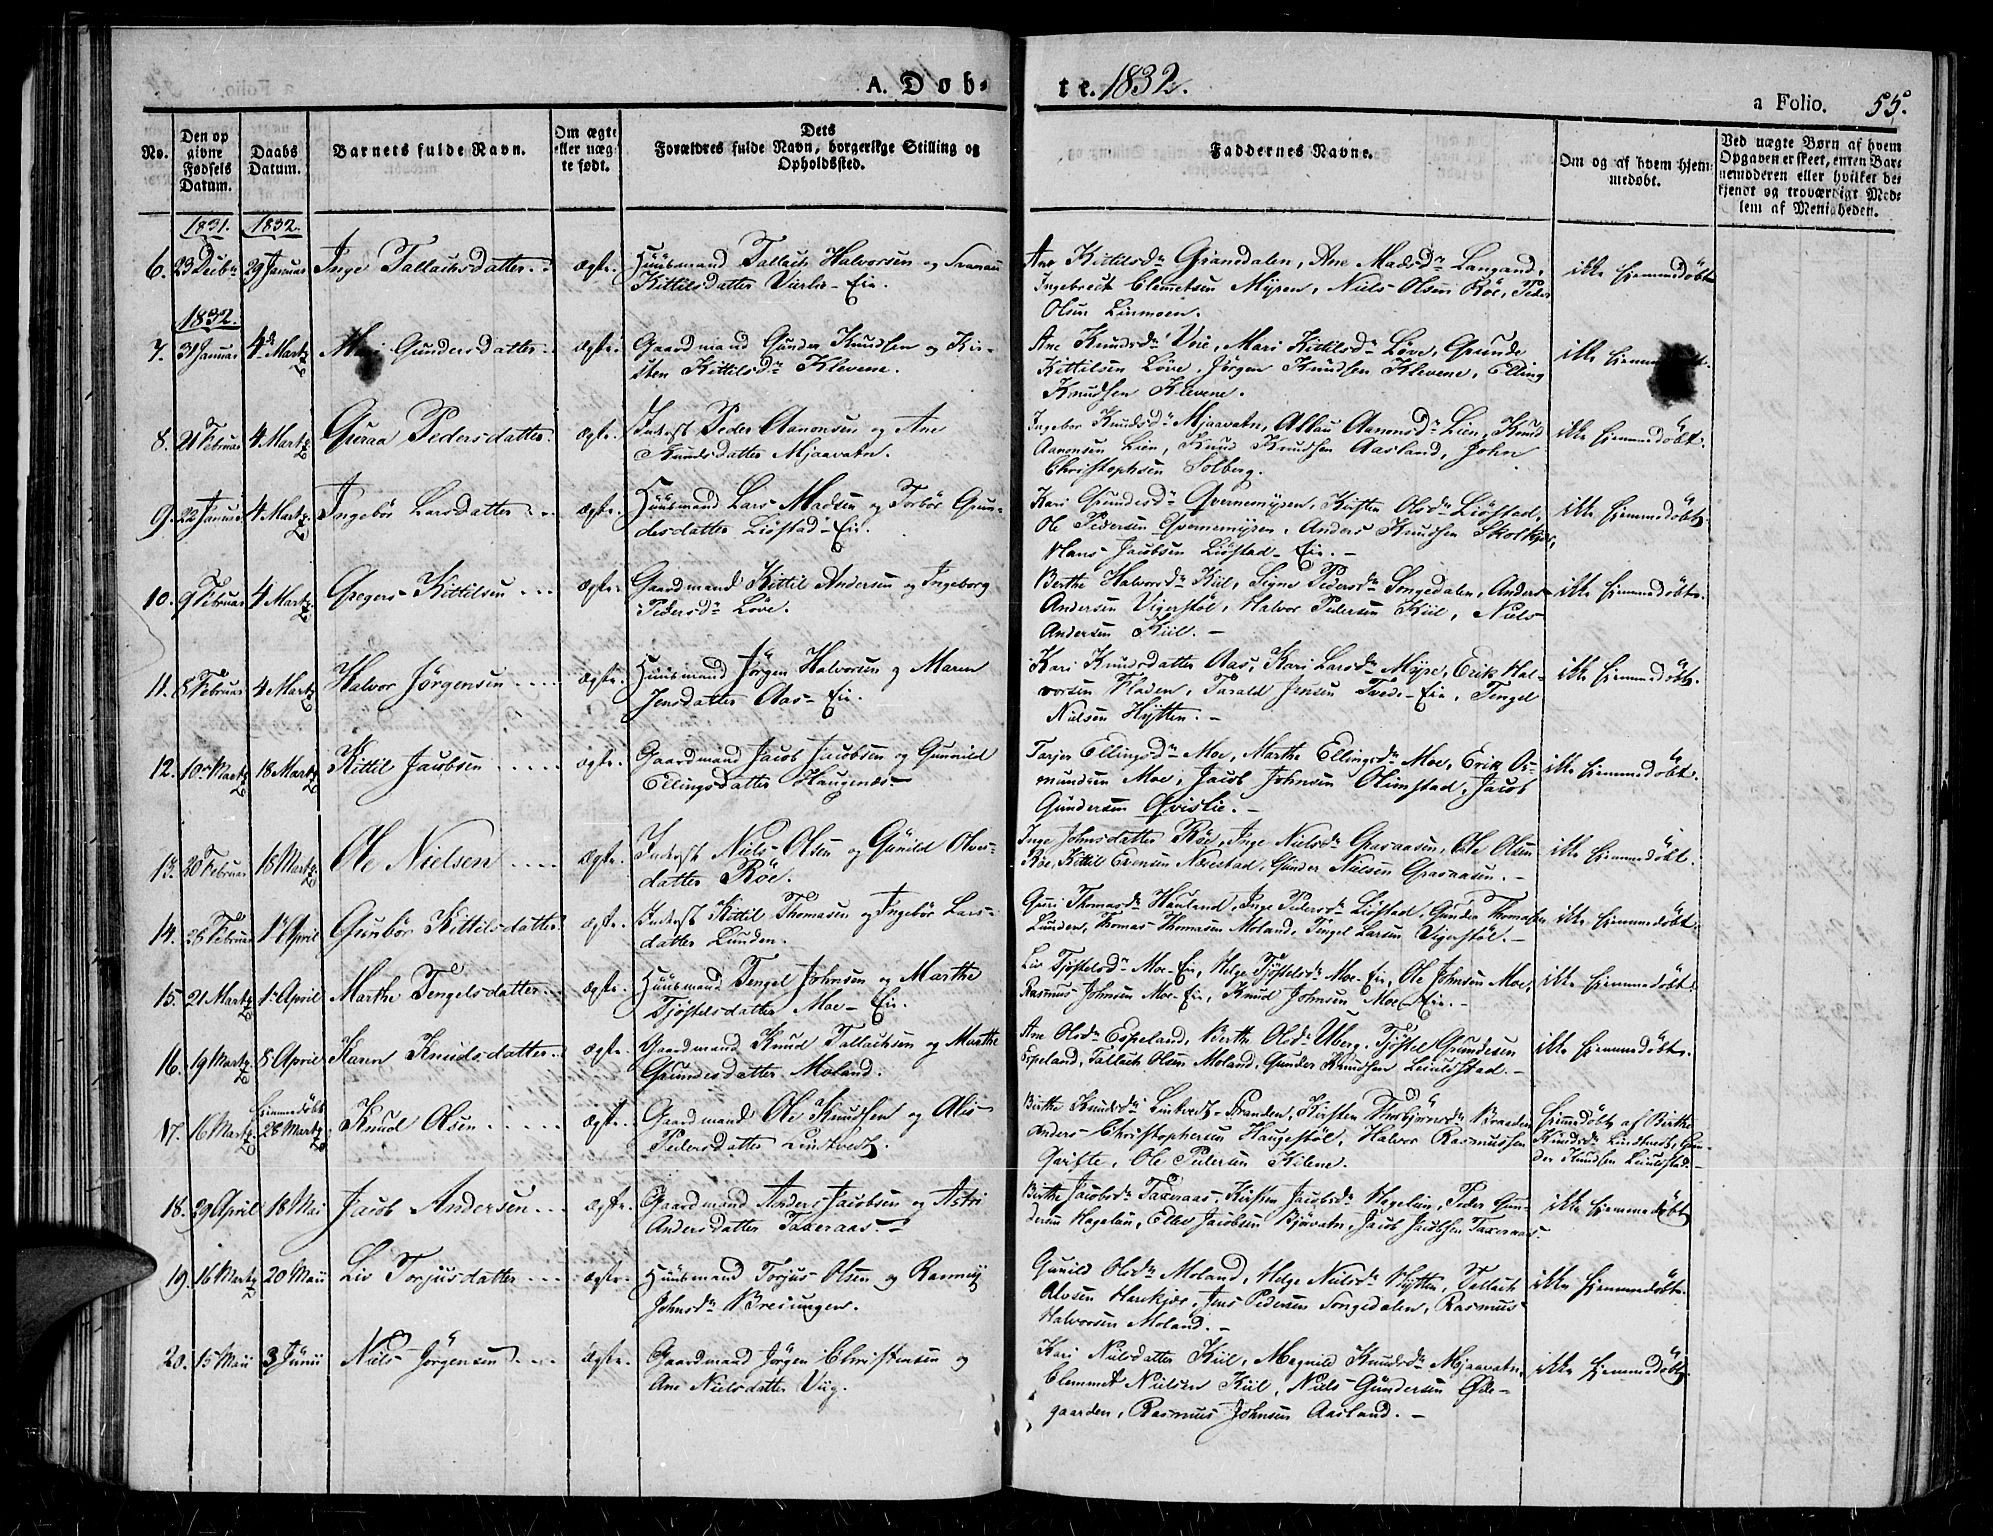 A. Døb-
te. 1832.
a Folio. 55.
No.
Den op
givne
Fødsels
Datum.
Daabs
Datum.
Barnets fulde Navn.
Om ægte
eller uæg-
te født.
Dets
Forældres fulde Navn, borgerlige Stilling og
Opholdssted.
Faddernes Navne.
Om og af hvem hjem-
medøbt.
Ved uægte Børn af hvem
Opgaven er skeet, enten Bar-
nemoderen eller hvilket be-
kjendt og troværdigt Med-
lem af Menigheden.
1831. 1832.
6. 23 Decbr 29 Januar Inge Tallachsdatter ægte. Huusmand Tallach Halvorsen og
Kittilsdatter Vierli-Eie.
Ane Kittilsdr Gransdalen, Ane Madsdr Langand,
Ingebrect Clemetsen Myren, Niels Olsen Röe, Peder
Olsen Linmoen.
ikke hjemmedöbt
1832.
7. 31 Januar 4de Martz Gundersdatter ægte. Gaardmand Gunder Knudsen og Kir-
sten Kittilsdr Klevene.
Ane Knudsdr Veie, Mari Kittilsdr Löve, Grunde
Kittilsen Löve, Jörgen Knudsen Klevene, Elling
Knudsen Klevene.
ikke
8. 21 Februar 4 Martz Guroa Pedersdatter ægte. Inderst Peder Aanonsen og Ane
Knudsdatter Mjaavatn.
Ingebor Knudsdr Mjaavatn, Aslau Aanonsdr Lien, Knud
Aanonsen Lien, Knud Knudsen Aasland, John
Christophsen Solberg.
ikke hjemmedöbt.
9. 22 Januar 4 Martz Ingebor Larsdatter ægte. Huusmand Lars Madsen og Torbör Grun-
desdatter Liöstad-Eie.
Kari Grundesdr Qvernemyren, Kirsten Olsdr Liöstad,
Ole Pedersen Qvernemyren, Anders Knudsen Skolkjer,
Hans Jacobsen Liöstad-Eie.
ikke hjemmedöbt.
10. 9 Februar 4 Martz Gregers Kittilsen ægte. Gaardmand Kittil Andersen og Ingeborg
Pedersdr Löve.
Berthe Halvorsdr Kiil, Signe Pedersdr Songedalen, Anders
Andersen Vigerstöl, Halvor Pedersen Kiil, Niels
Andersen Kiil.
ikke hjemmedöbt.
11. 8 Februar 4 Martz Halvor Jörgensen ægte. Huusmand Jörgen Halvorsen og Maren
Jensdatter Aas-Eie.
Kari Knudsdatter Aas, Kari Larsdr Myre, Erik Hal-
vorsen Fladen, Tarald Jensen Tvede-Eie, Tengel
Nielsen Hytten.
ikke hjemmedöbt.
12. 10 Martz 18 Martz Kittil Jacobsen ægte. Gaardmand Jacob Jacobsen og Gunnild
Ellingsdatter Haugenæs
Tarjer Ellingsdr Moe, Marthe Ellingsdr Moe, Erik Os-
mundsen Moe, Jacob Johnsen Olimstad, Jacob
Gundersen Qvislie.
ikke hjemmedöbt.
13. 20 Februar 18 Martz Ole Nielsen ægte. Inderst Niels Olsen og Gunild Olves-
datter Röe.
Inge Johnsdatter Röe, Inge Nielsdr Gravaasen, Ole Olsen
Röe, Kittil Evensen Næistad, Gunder Nielsen Gravaasen.
ikke hjemmedöbt.
14. 26 Februar 1ste April Gunbör Kittilsdatter ægte. Inderst Kittil Thomasen og Ingebor Lars-
datter Lunden.
Guri Thomasdr Hauland, Inge Pedersdr Liöstad, Gunder Thomassen
Lunden, Thomas Thomasen Moland, Tengel Larsen Vigerstöl.
ikke hjemmedöbt.
15. 21 Martz 1ste April Marthe Tengelsdatter ægte. Huusmand Tengel Johnsen og Marthe
Tjöstelsdatter Moe-Eie.
Liv Tjöstelsdr Moe-Eie, Helge Tjöstelsdr Moe-Eie, Ole Johnsen Moe,
Rasmus Johnsen Moe-Eie, Knud Johnsen Moe-Eie.
ikke hjemmedöbt.
16. 19 Martz 8 April Karen Knudsdatter ægte. Gaardmand Knud Tallachsen og Marthe
Grundesdatter Moland.
Ane Olsdr Espeland, Berthe Olsdr Uberg, Tjöstel Grundesen
Espeland, Tallach Olsen Moland, Gunder Knudsen Leivildstad.
ikke hjemmedöbt.
17. 16 Martz hjemmedöbt 28 Martz Knud Olsen ægte. Gaardmand Ole Knudsen og Alis
Pedersdatter Lindtvedt.
Birthe Knudsdr Lindtvedt-Stranden, Kirsten Thorbjörnsdr Braaden
Anders Christophersen Haugestöl, Halvor Rasmussen
Qvifte, Ole Pedersen Kilene.
hjemmedöbt af Birthe
Knudsdr Lindtvedt, Gun-
der Knudsen Leivildstad.
18. 29 April 18 Mai Jacob Andersen ægte. Gaardmand Anders Jacobsen og Astri
Andersdatter Taxeraas.
Birthe Jacobsdr Taxeraas, Kirsten Jacobsdr Hægelun, Peder Gun-
dersen Hægelun, Ellev Jacobsen Bjorvatn, Jacob Jacobsen Taxeraas.
ikke hjemmedöbt
19. 16 Martz 20 Maii Liv Torjusdatter ægte. Huusmand Torjus Olsen og Ranneig
Johnsdr Breiungen.
Gunild Olsdr Moland, Helge Nielsdr Hytten, Tallach
Alvsen Harekjær, Jens Pedersen Songedalen, Rasmus
Halvorsen Moland.
ikke hjemmedöbt.
20. 15 Maii 3 Junii Niels Jörgensen ægte. Gaardmand Jörgen Christensen og
Ane Nielsdatter Viig.
Kari Nielsdatter Kiil, Magnild Knudsdr Mjaavatn,
Clemmet Nielsen Kiil, Niels Gundersen Öde-
gaarden, Rasmus Johnsen Aasland.
ikke hjemmedöbt.